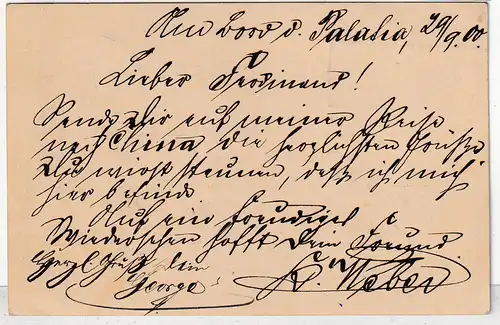 An Bord d. Palatia, 29/9. 00.
Lieber Ferdinand!
Sende Dir auf meiner Reise
nach China, die herzlichsten Grüße
Du wirst staunen, daß ich mich
hier befinde.
Auf ein freudiges
Wiedersehen hofft Dein Freund
Herzl. Grüße dein
George
K. Weber